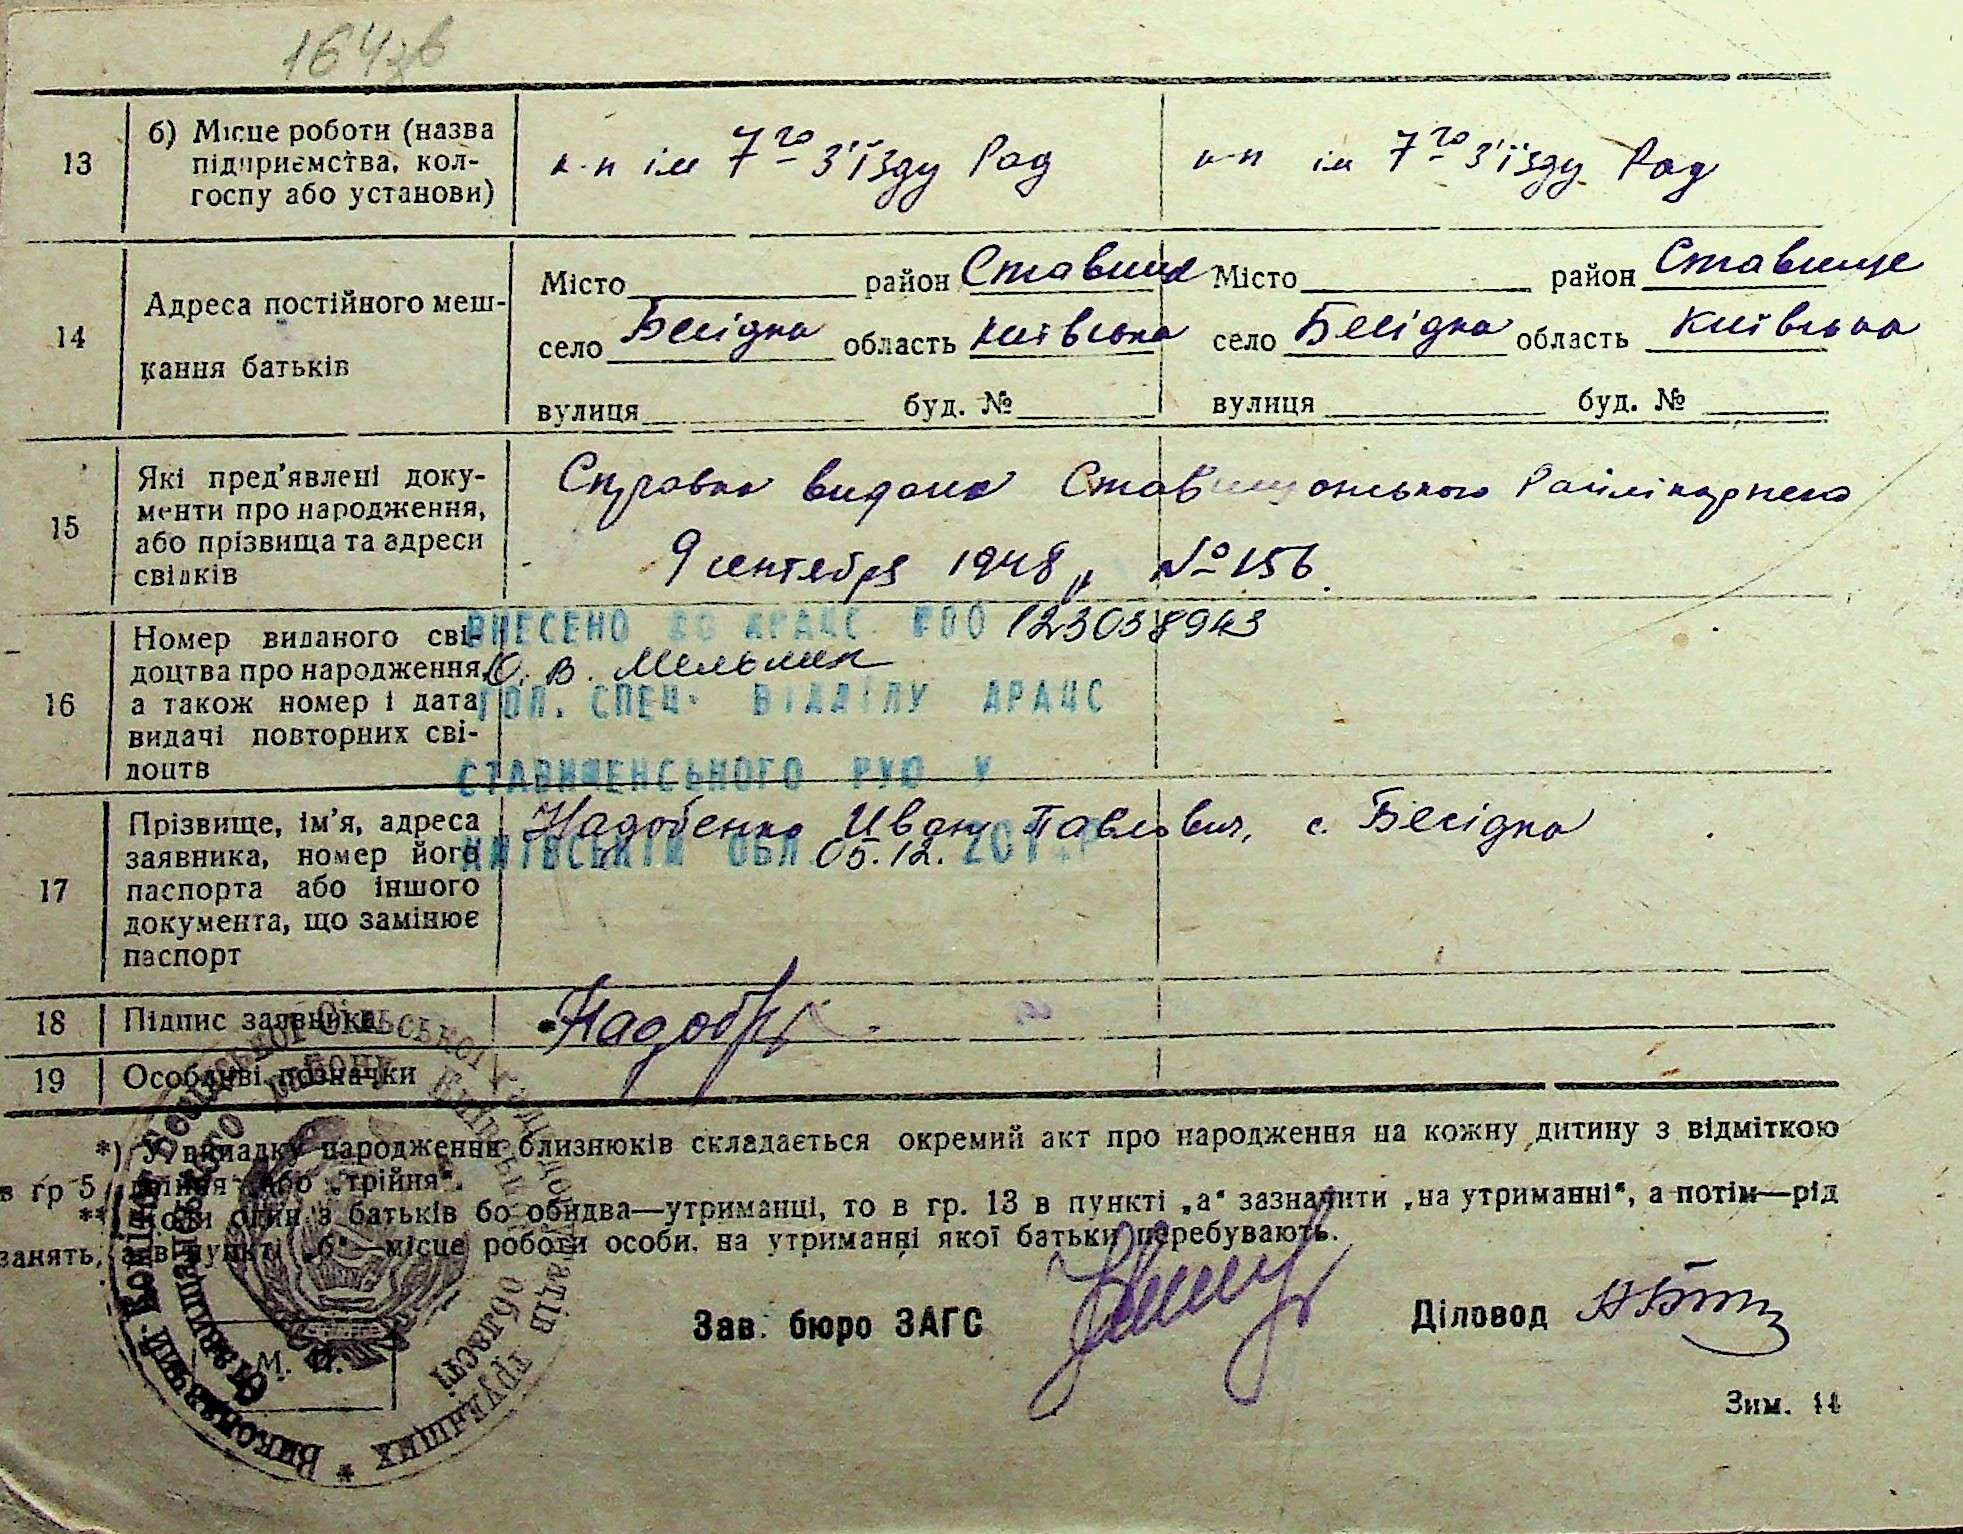 164зв
13
б) Місце роботи (назва
підприємства, кол-
госпу або установи)
к-п ім 7го З'їзду Рад
к-п ім 7го З'їзду Рад
14
Адреса постійного меш-
кання батьків
Місто район Ставище
село Бесідка область Київська
вулиця буд. №
Місто район Ставище
село Бесідка область Київська
вулиця буд. №
15
Які пред'явлені доку-
менти про народження,
або прізвища та адреси
свідків
Справка видана
9 сентября 1948 №156
16
Номер виданого сві-
доцтва про народження,
а також номер і дата
видачі повторних сві-
доцтв
ВНЕСЕНО ДО ДРАЦС 00123038943
О. В. Мельник
ГОЛ. СПЕЦ. ВІДДІЛУ ДРАЦС
СТАВИЩЕНСЬКОГО РУЮ У
КИЇВСЬКІЙ ОБЛ. 05.12.
17
Прізвище, ім'я, адреса
заявника, номер його
паспорта або іншого
документа, що замінює
паспорт
Надобенко Иван Павлович, с. Бесідка
18
Підпис заявника
19
Особливі позначки
*) У випадку народження близнюків складається окремий акт про народження на кожну дитину з відміткою
в гр 5 „двійня" або „трійня".
**) Коли один з батьків бо обидва—утриманці, то в гр. 13 в пункті „а" зазначити „на утриманні", а потім—рід
занять, а в пункті „б"—місце роботи особи. на утриманні якої батьки перебувають.
Зав. бюро ЗАГС
Діловод
М. П.
Виконавчий Комітет Бесідської Сільської Ради депутатів трудящих *
Ставищанського району Київської області
Зим. 11